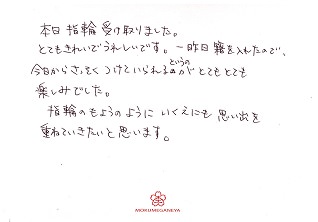 本日 指輪 受け取りました。
とてもきれいでうれしいです。一昨日 籍を入れたので、
今日からさっそく つけていられるというのが とてもとても
楽しみでした。
指輪のもようのように いくえにも 思い出を
重ねていきたいと思います。
MOKUMEGANEYA